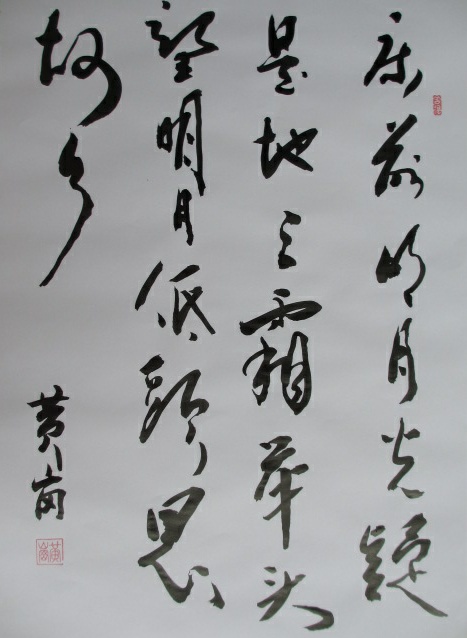 床前明月光疑
是地上霜举头
望明月低頭思
故乡
黄岗